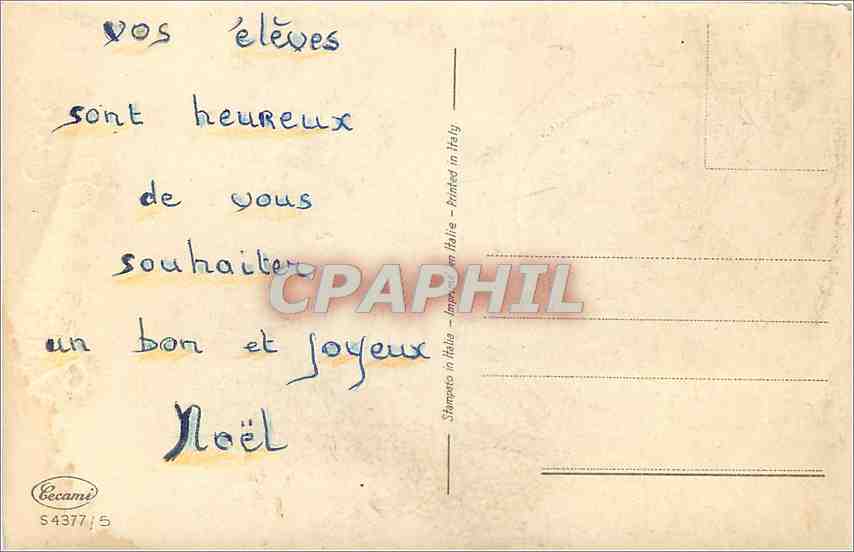 vos élèves
sont heureux
de vous
souhaiter
un bon et joyeux
Noël
Cecami
S 4377/5
Stampato in Italia - Imprimé en Italie - Printed in Italy
CPAPHIL